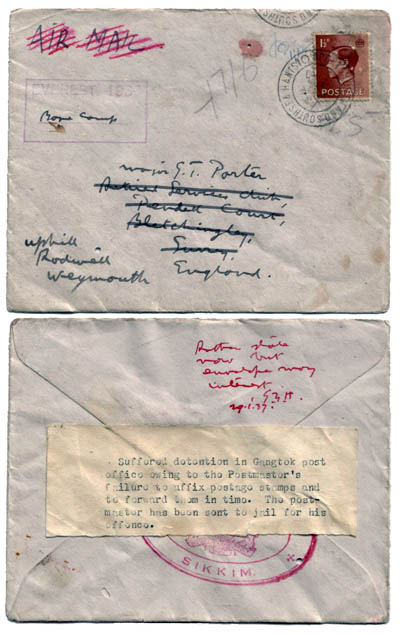 AIR MAIL
1½
POSTAGE
EVEREST 193
Base Camp
Major G.T. Porter
Active Services Club
Pendell Court,
Bletchingley,
Surrey,
England.
uphill
Rodwell
Weymouth
Rather stale
now but
envelope may
interest.
Suffered detention in Gangtok post
office owing to the Postmaster's
failure to affix postage stamps and
to forward them in time. The post-
master has been sent to jail for his
offence.
SIKKIM.